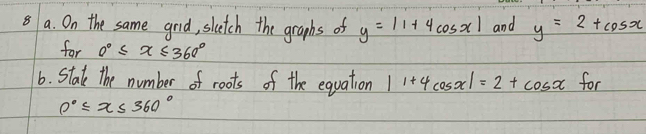 8 a. On the same grid, sketch the graphs of y = |1 + 4 cos x| and y = 2 + cos x
for 0° ≤ x ≤ 360°
b. State the number of roots of the equation | 1+4 cos x| = 2 + cos x for
0° ≤ x ≤ 360°